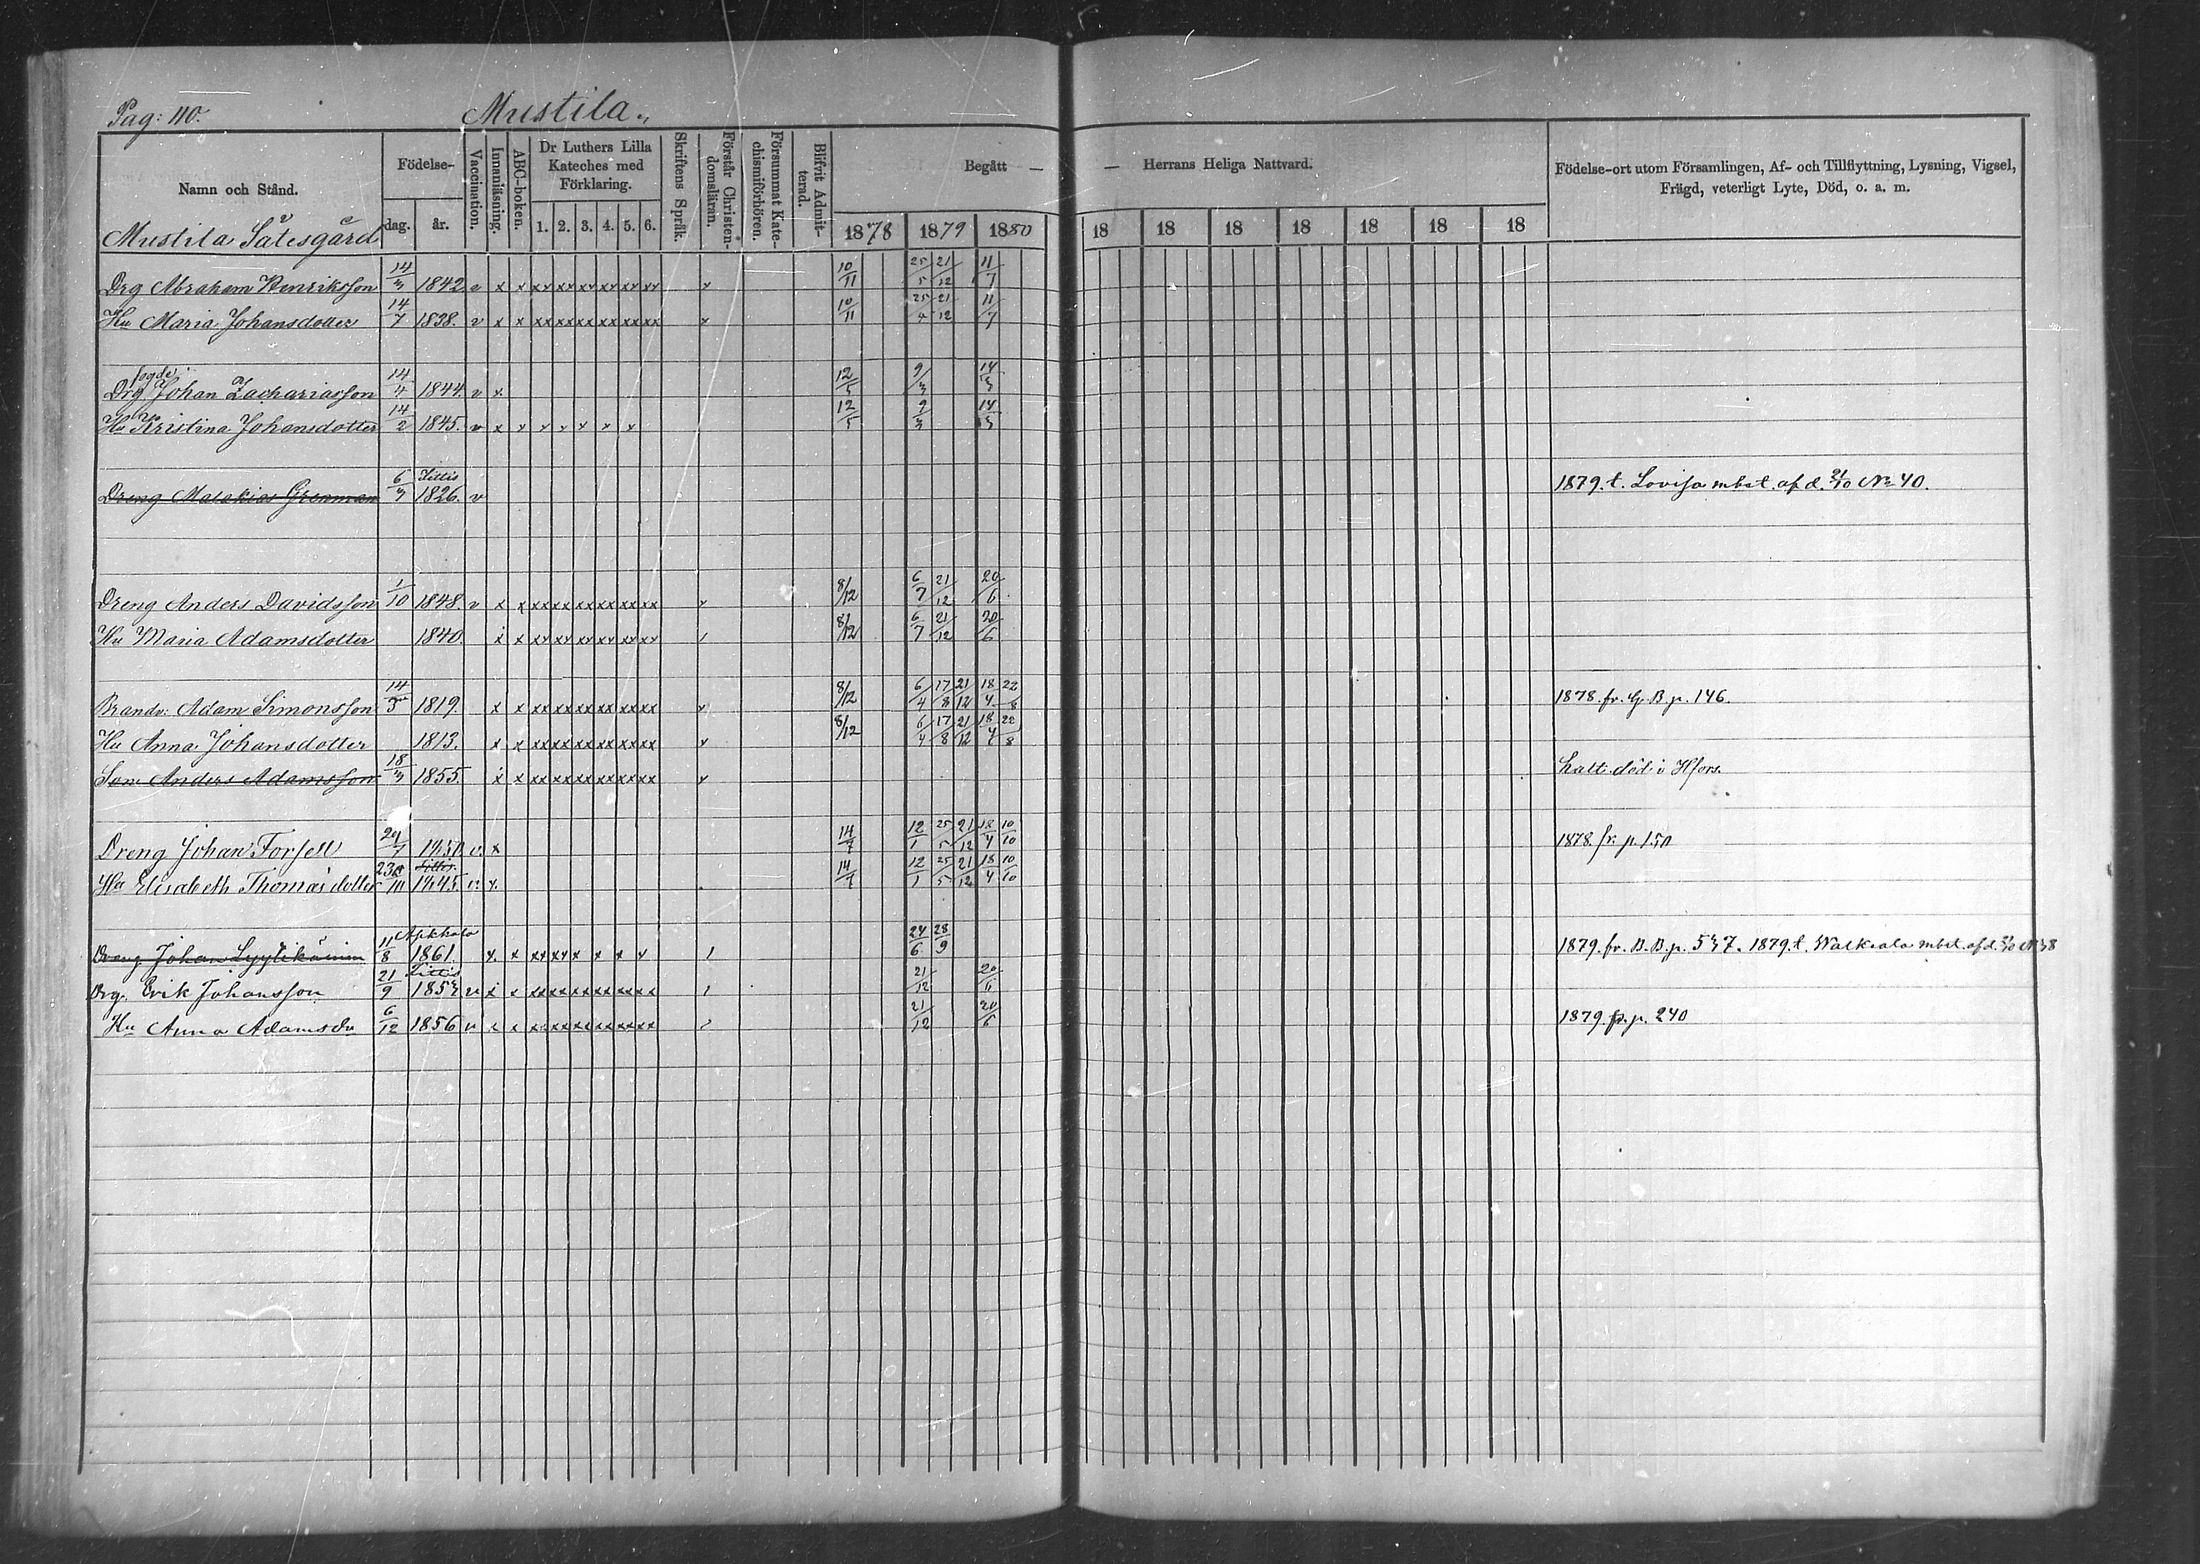 Pag: 110. Mustila.
Namn och Stånd. Födelse- dag. år. Vaccination. Innanläsning. ABC-boken. Dr Luthers Lilla Kateches med Förklaring. 1. 2. 3. 4. 5. 6. Skriftens Språk. Förstår Christendomsläran. Försummat Katechismiförhören. Blifvit Admitterad. Begått — — Herrans Heliga Nattvard. Födelse-ort utom Församlingen, Af- och Tillflyttning, Lysning, Vigsel, Frägd, veterligt Lyte, Död, o. a. m.
Mustila Sätesgård 1878 1879 1880 18 18 18 18 18 18 18
Drg Abraham Henriksson 14/3 1842 v x x xx xx xx xx xx xx x 10/11 25/5 21/12 11/7
Hu Maria Johansdotter 14/7 1838. v x x xx xx xx xx xx xx x 10/11 25/4 21/12 11/7
fogde
Drg Johan Zachariasson 14/4 1844. v x 12/5 9/3 14/3
Hu Kristina Johansdotter 14/2 1845. v x x x x x x x 12/5 9/3 14/3
Dreng Malakias Grenman 6/3 Jittis 1826. v 1879. t. Lovisa mbet. af d. No 40.
Dreng Anders Davidsson 1/10 1848. v x x xx xx xx xx xx xx x 8/12 6/7 21/12 20/6
Hu Maria Adamsdotter 1840. x x xx xx xx xx xx xx 8/12 6/7 21/12 20/6
Brandv. Adam Simonsson 14/5 1819. x x xx xx xx xx xx xx x 8/12 6/4 17/8 21/12 18/4 22/8 1878. fr. G. B. p. 146.
Hu Anna Johansdotter 1813. x x xx xx xx xx xx xx x 8/12 6/4 17/8 21/12 18/4 22/8
Son Anders Adamsson 18/3 1855. x x xx xx xx xx xx xx x halt. död i Hfors.
Dreng Johan Forsell 1850 v. x 14/7 12/1 25/5 21/12 18/4 10/10 1878. fr. p. 150
Hu Elisabeth Thomasdotter 1845 v. x. 14/7 12/1 25/5 21/12 18/4 10/10
Dreng Johan Lyytikäinen 11/8 1861. x. x xx xx x x x x 24/6 28/9 1879. fr. B. B. p. 537. 1879. t. Walkeala mbet. af d.
Drg. Erik Johansson 21/9 Jittis v x x xx xx xx xx xx xx 21/12 20/6
Hu Anna Adamsdr 6/12 1856 v x x xx xx xx xx xx xx 21/12 20/6 1879. fr. p. 240